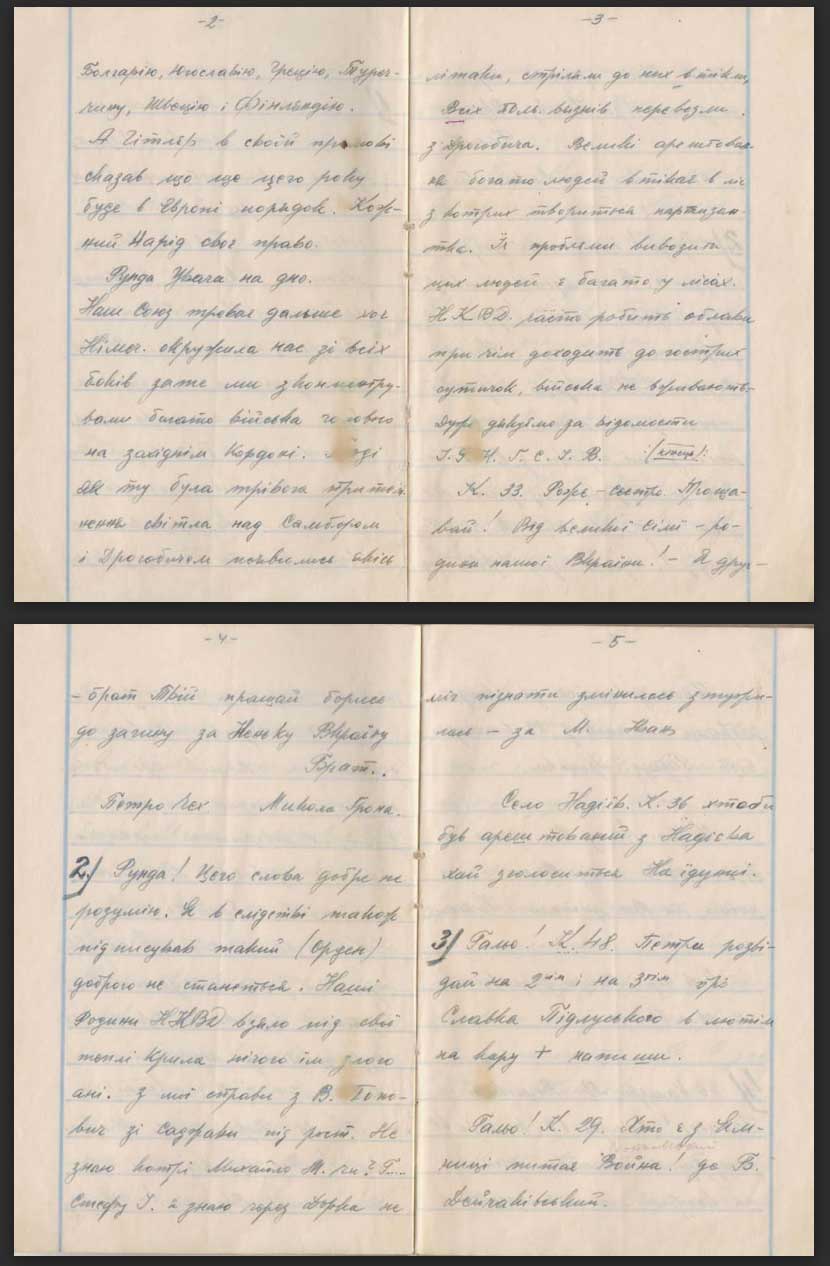 -2-
Болгарію, Югославію, Грецію, Туреч-
чину, Швецію і Фінляндію.
А Гітлєр в своїй промові
сказав що ще цього року
буде в Европі порядок. Кож-
ний Нарід своє право.
Рунда Увага на дно.
Наш Союз троває дальше хоч
Німеч. окружила нас зі всіх
боків зате ми сконцентру-
вали богато війська головно
на західнім Кордоні.
як ту була трівога
світла над Самбором
і Дрогобичом появились якісь
-3-
літаки, стріляли до них втікли,
Всіх поль. вязнів перевезли
з Дрогобича. Великі арештован-
ня богато людей втікає в ліс
з котрих твориться партизан-
тка. Їх проблями вивозити
цих людей є багато у лісах.
Н.К.В.Д. часто робить облави
при чім доходить до гострих
сутичок, війська не
Дуже дякуємо за відомости
К. 33. сестро. Проща-
вай! Від великої сімї - ро-
дини нашої Вкраїни! - Я друг-
-4-
- брат Твій пращай борись
до загину за Неньку Вкраїну
Брат.
Петро Чех Микола Грона.
2) Рунда! Цего слова добре не
розумію. Я в слідстві також
підписував такий (Орден)
доброго не станеться. Наші
Родини НКВД взяло під свої
теплі Крила нічого їм злого
ані. З мої справи з В. Попо-
вич зі Саджави під рост. Не
знаю котрі Михайло М. чи?
Стефу І. я знаю через Дорка не
-5-
міг пізнати змінилась
лась - за М. Іван
Село Надіїв. К. 36 хтоби
був арештований з Надієва
хай зголоситься На їдунці.
3) Гальо! К. 48. Петра розві-
дай на 2 ім і на 3 тім
Славка Підлуського в лютім
на кару + напиши.
Гальо! К. 29. Хто є з Ям-
ниці питає Война! до Б.
Дейчаківський.